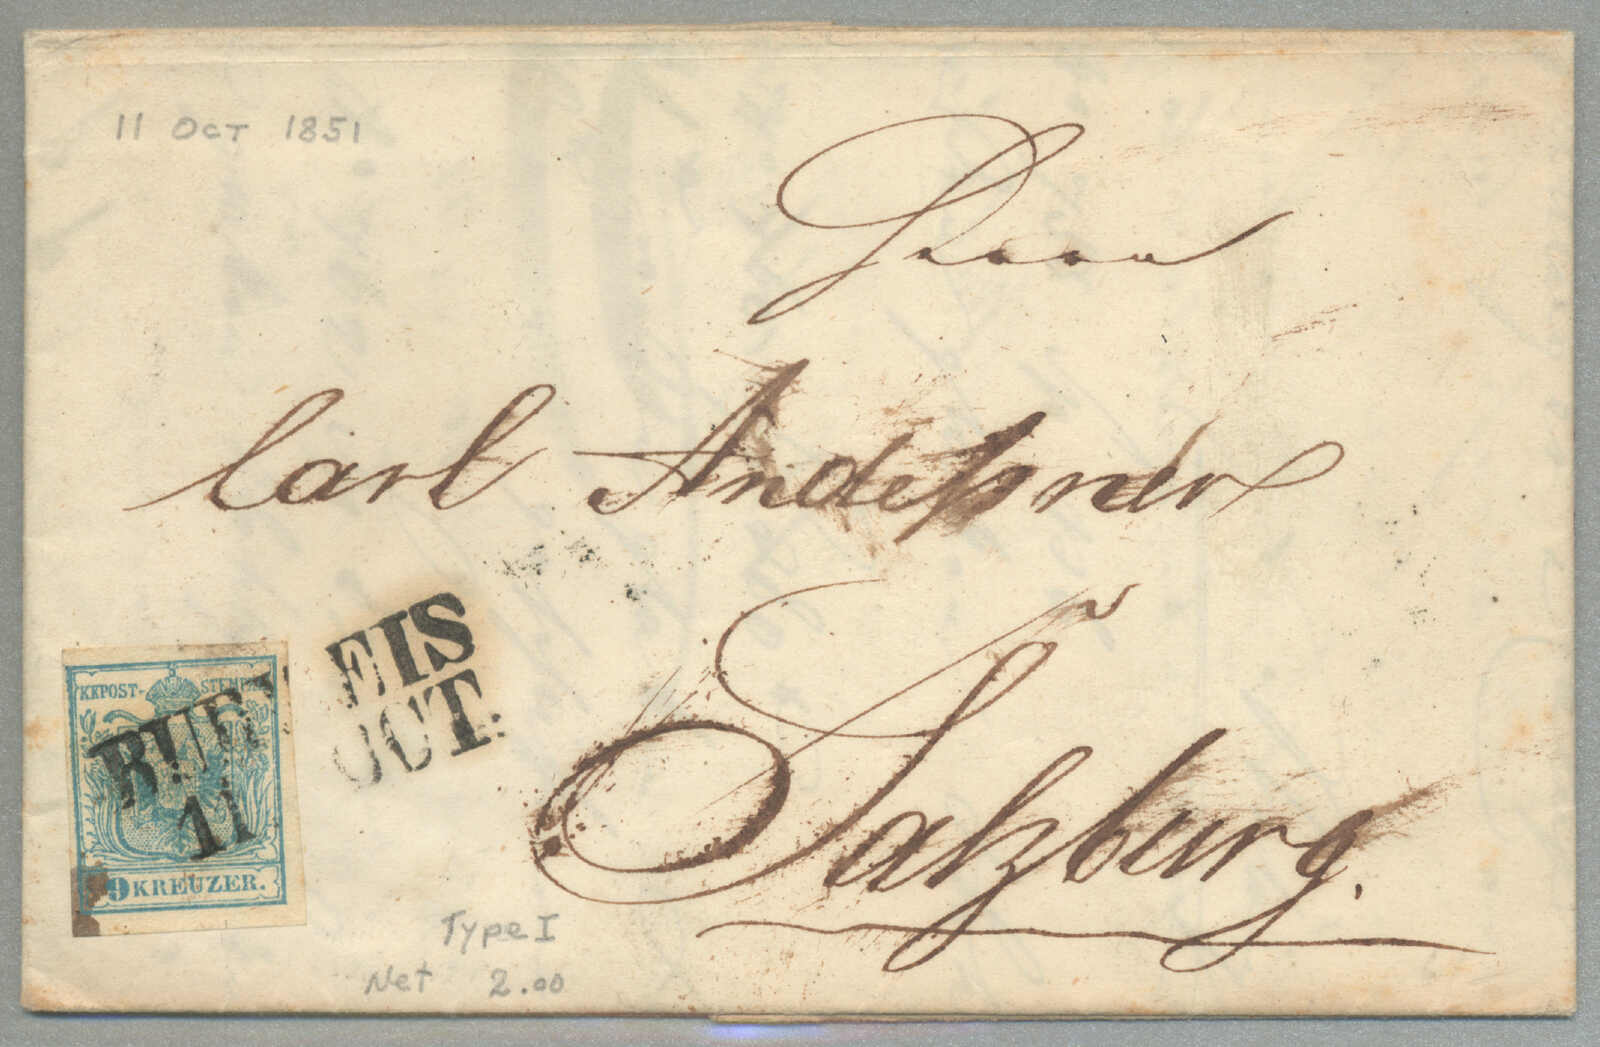 11 OCT 1851
Herrn
Carl Andeßner
Salzburg.
EIS
OCT.
KKPOST- STEMPEL
11
9 KREUZER.
Type I
Net 2.00